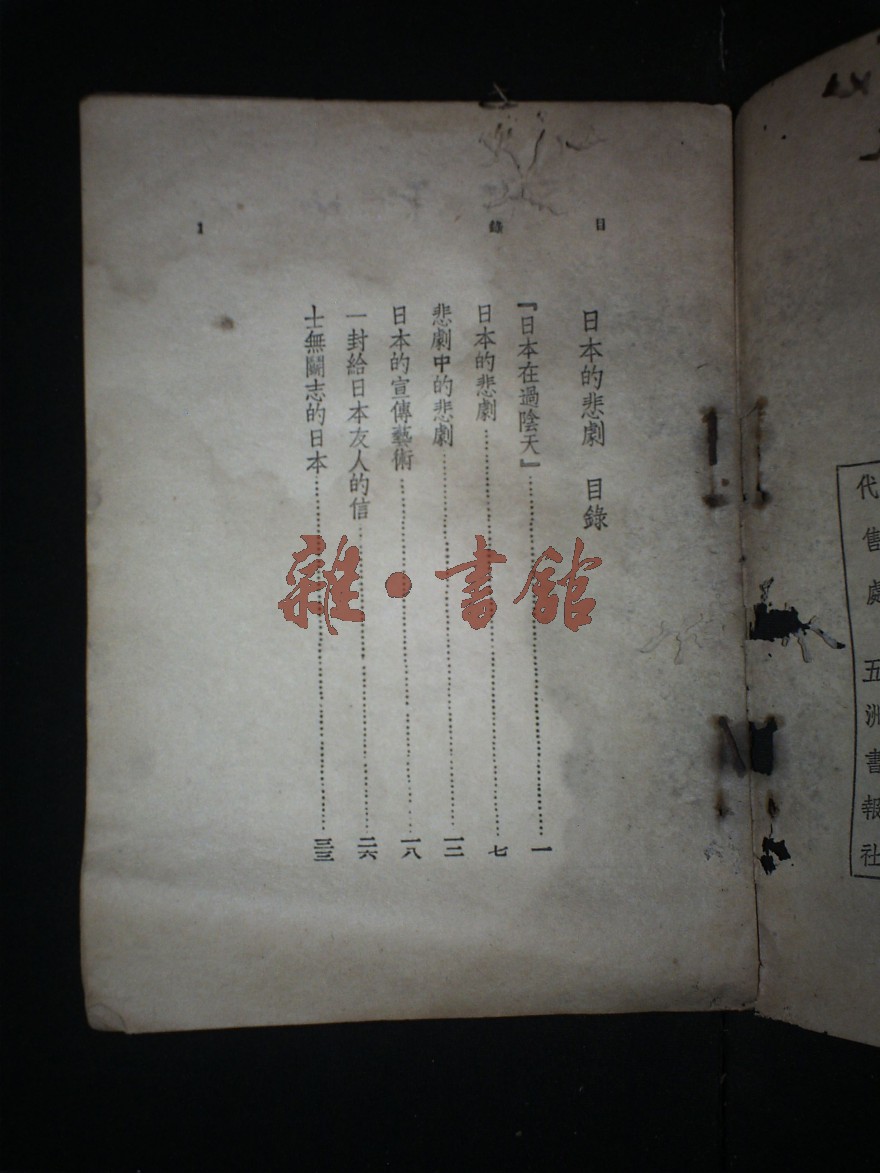 目錄 1
日本的悲劇 目錄
『日本在過陰天』……一
日本的悲劇……七
悲劇中的悲劇……一二
日本的宣傳藝術……一八
一封給日本友人的信……二六
士無鬭志的日本……三三
雜·書館
代售處 五洲書報社